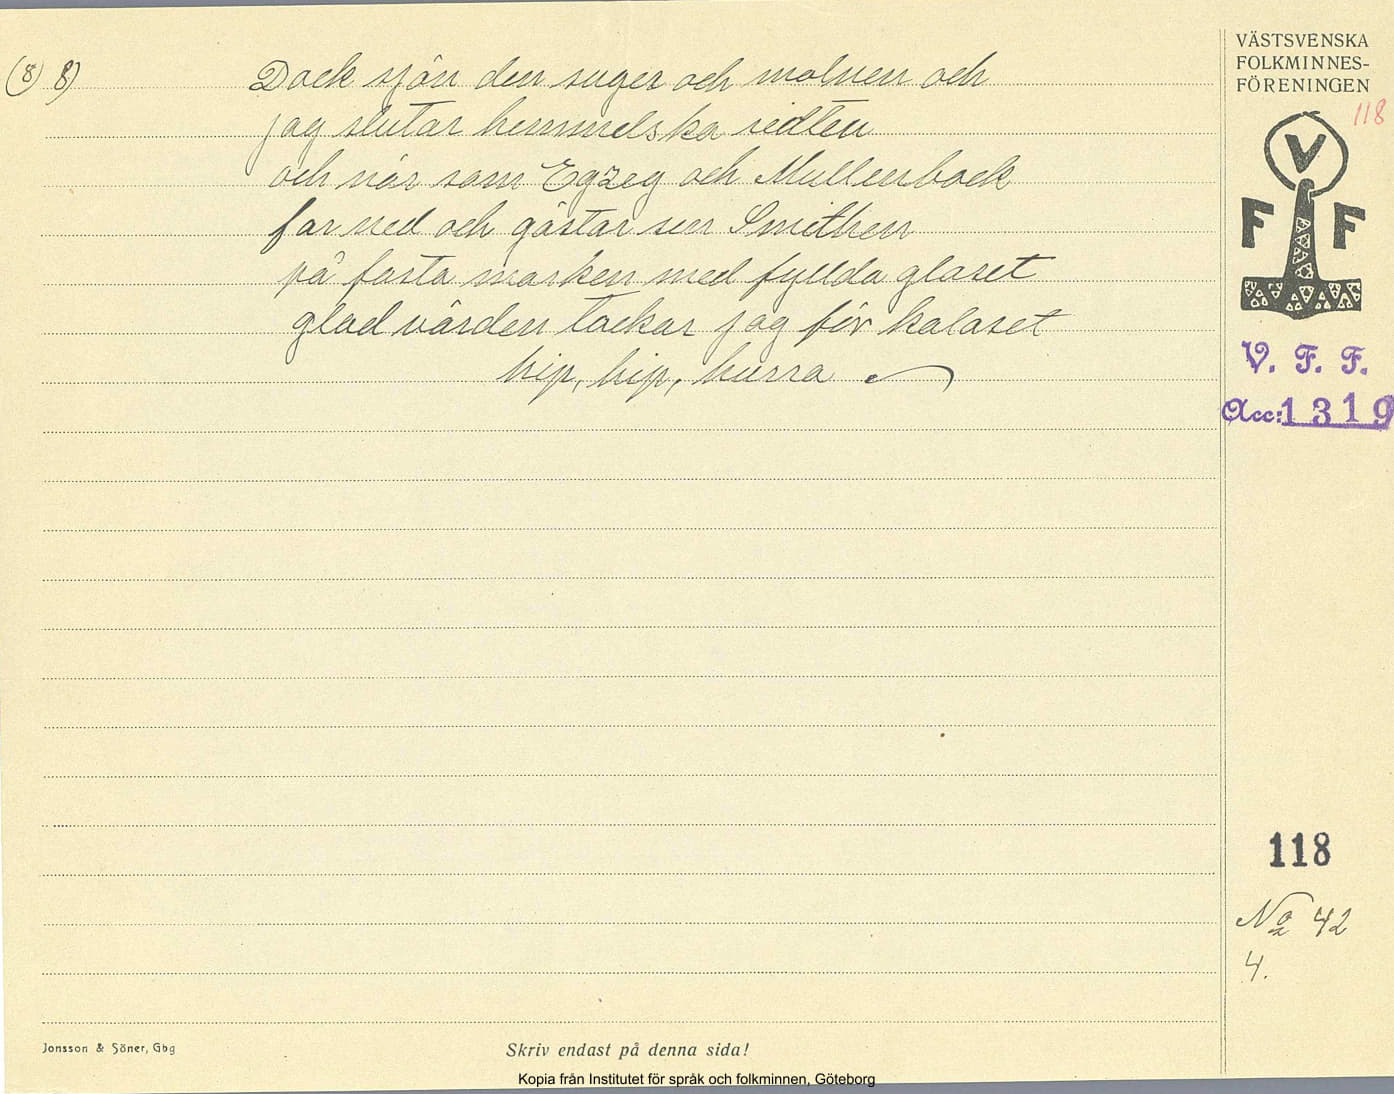 (8) 8) Dock sjön den suger och molnen och
jag slutar hemmelska
och när som Egzeg och Mullenbock
far ned och gästar sen Smithen
på fasta marken med fyllda glaset
glad värden tackar jag för kalaset
hip, hip, hurra
VÄSTSVENSKA
FOLKMINNES-
FÖRENINGEN
118
V
F F
V. F. F.
Acc: 1319
118
No 42
4.
Jonsson & Söner, Gbg
Skriv endast på denna sida!
Kopia från Institutet för språk och folkminnen, Göteborg